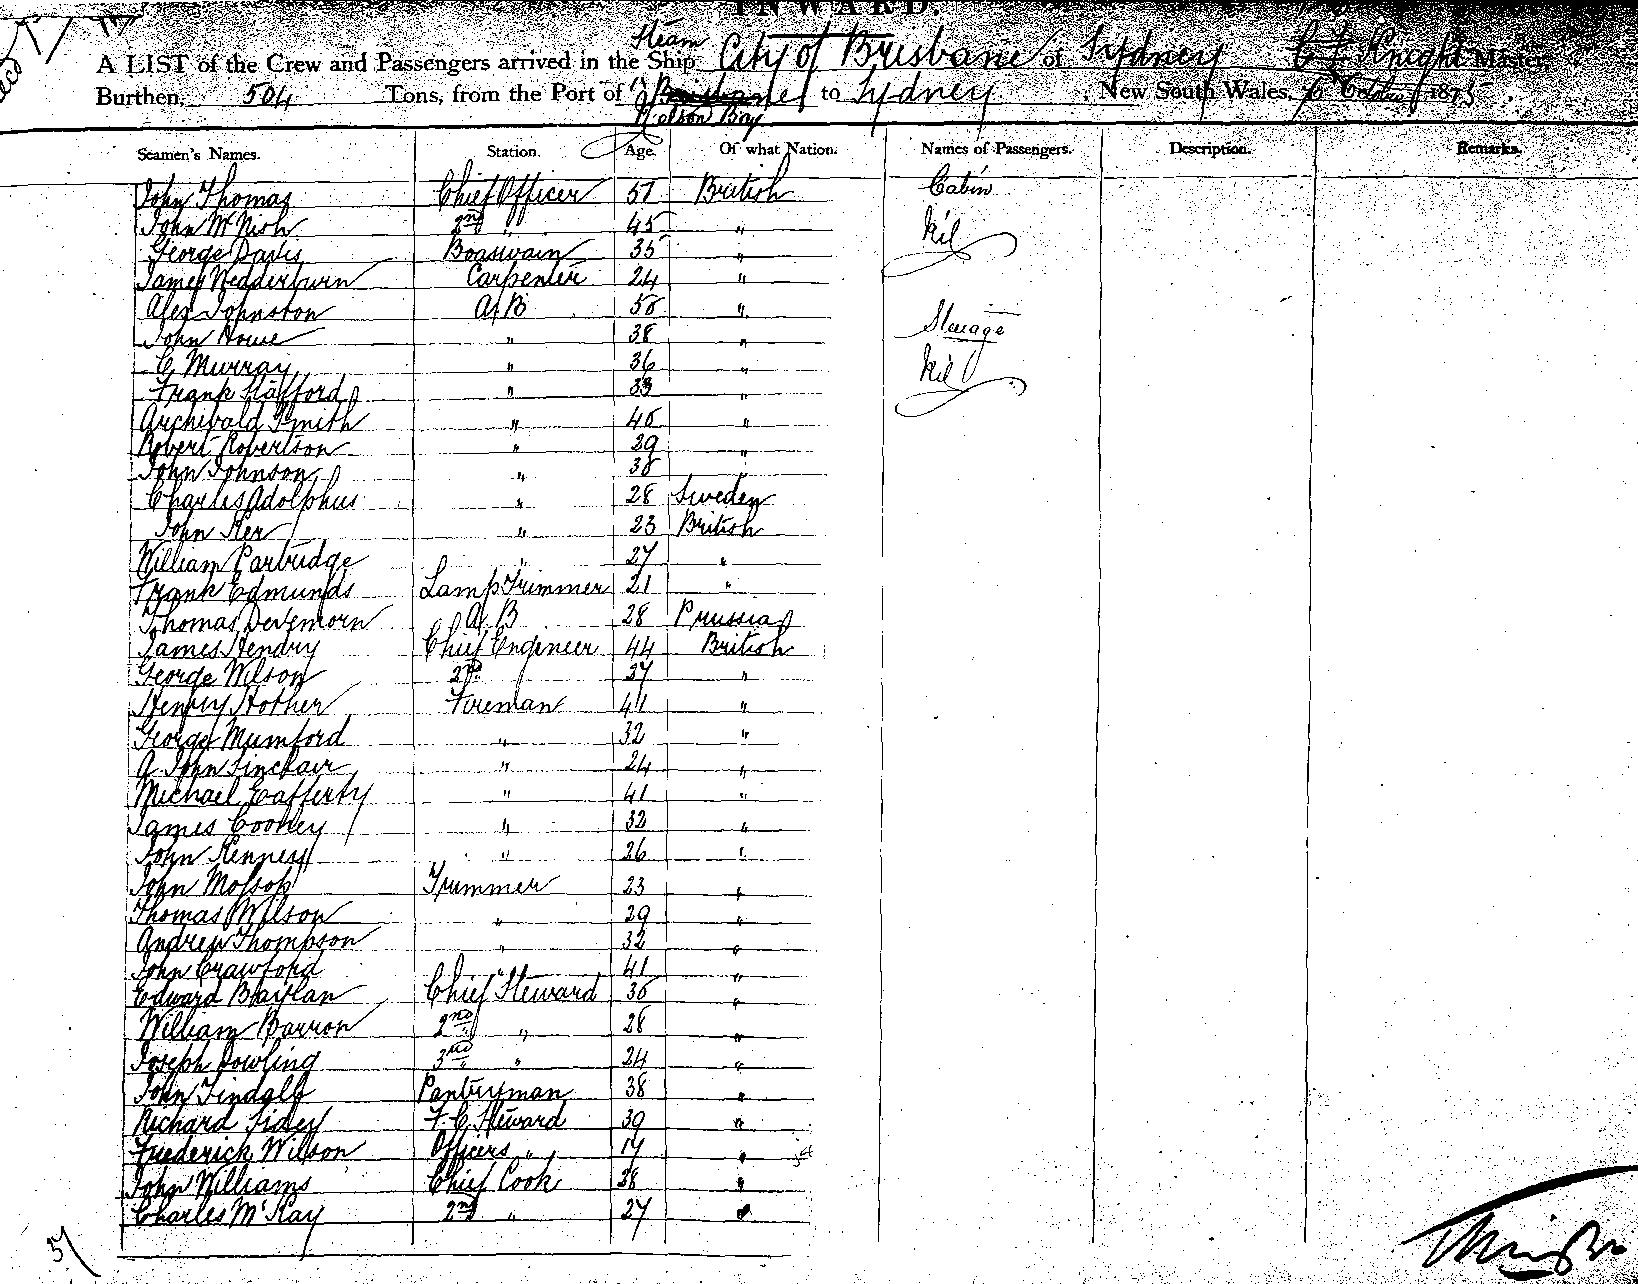 INWARD.
Steam
A LIST of the Crew and Passengers arrived in the Ship City of Brisbane of Sydney Knight Master,
Burthen, 504 Tons, from the Port of Brisbane to Sydney New South Wales, October 1875
Nelson Bay
Seamen's Names. Station. Age. Of what Nation. Names of Passengers. Description. Remarks.
John Thomas Chief Officer 51 British Cabin
John McNish 2nd " 45 " Nil
George Davis Boaswain 35 "
James Wedderburn Carpenter 24 "
Alex Johnston A B 50 "
John Howe " 38 " Steerage
C Murray " 36 " Nil
Frank Stafford " 33 "
Archibald Smith " 40 "
Robert Robertson " 29 "
John Johnson " 38 "
Charles Adolphus " 28 Sweden
John Ker " 23 British
William Partridge " 27 "
Frank Edmunds Lamp Trimmer 21 "
Thomas A B 28 Prussia
James Hendry Chief Engineer 44 British
George Wilson 2nd 37 "
Henry Hother Fireman 41 "
George Mumford " 32 "
A John Sinclair " 24 "
Michael Lafferty " 41 "
James Cooney " 32 "
John Kenney " 26 "
John Molsop Trimmer 23 "
Thomas Wilson " 29 "
Andrew Thompson " 32 "
John Crawford " 41 "
Edward Chief Steward 30 "
William Barron 2nd " 28 "
Joseph Dowling 3rd " 24 "
John Tindall Pantryman 38 "
Richard Sidey F. C. Steward 39 "
Frederick Wilson Officers " 17 "
John Williams Chief Cook 28 "
Charles McKay 2nd " 27 "
37